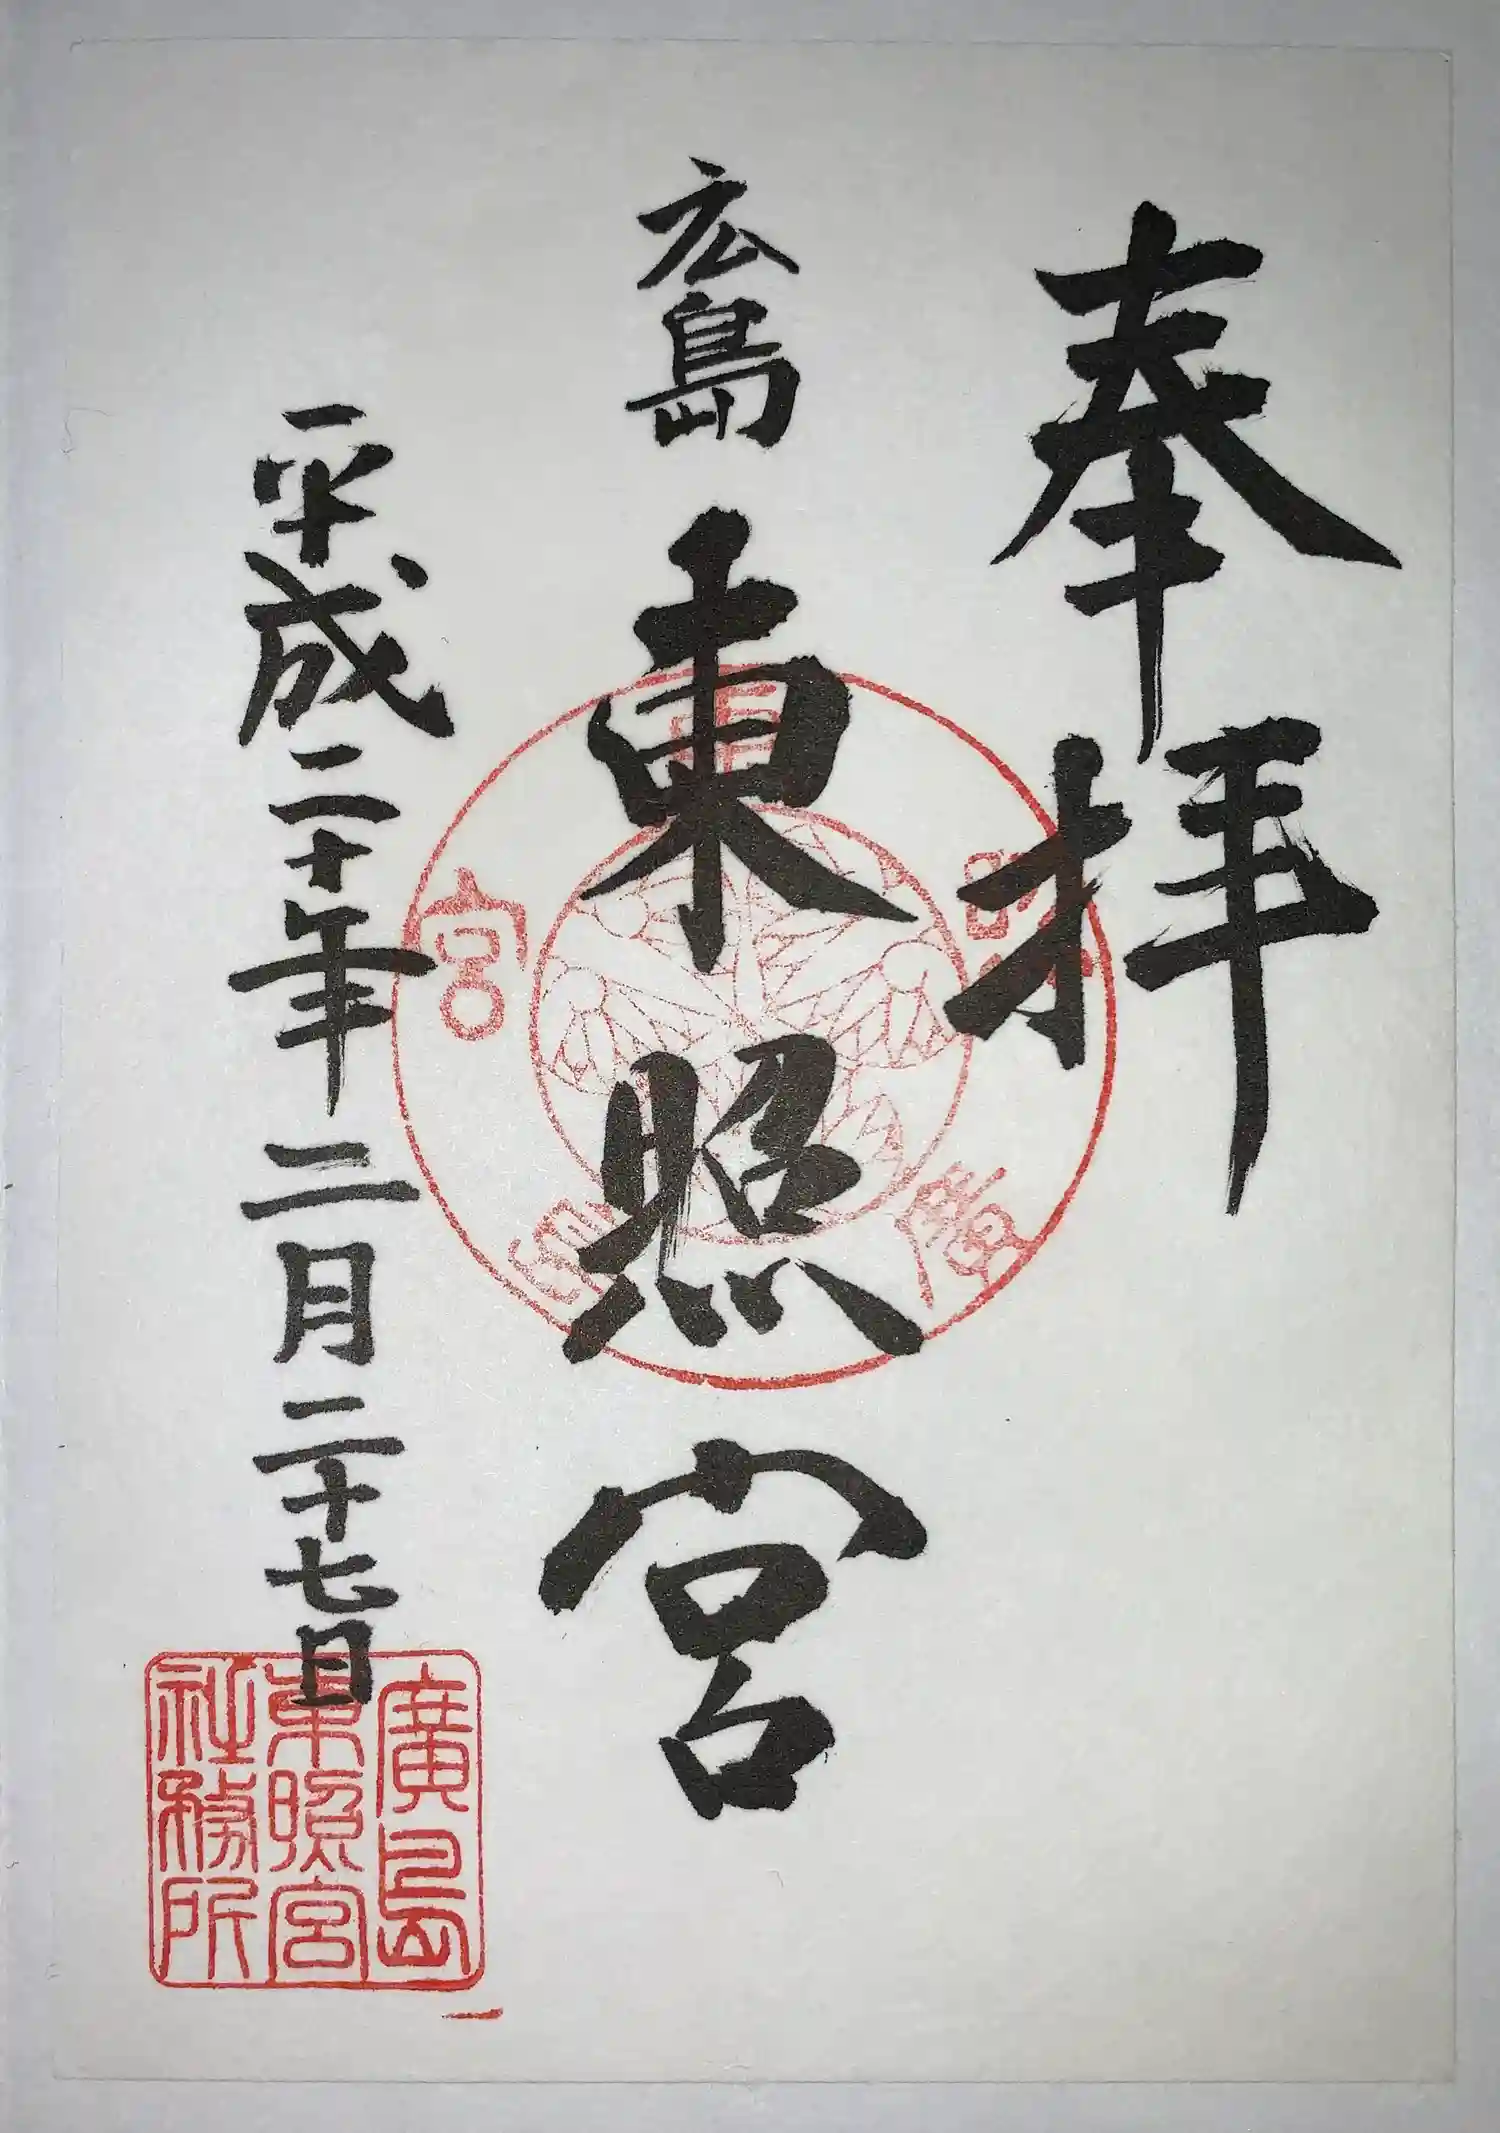 奉拝
広島 東照宮
平成二十年二月二十七日
東照宮廣島
廣島
東照宮
社務所